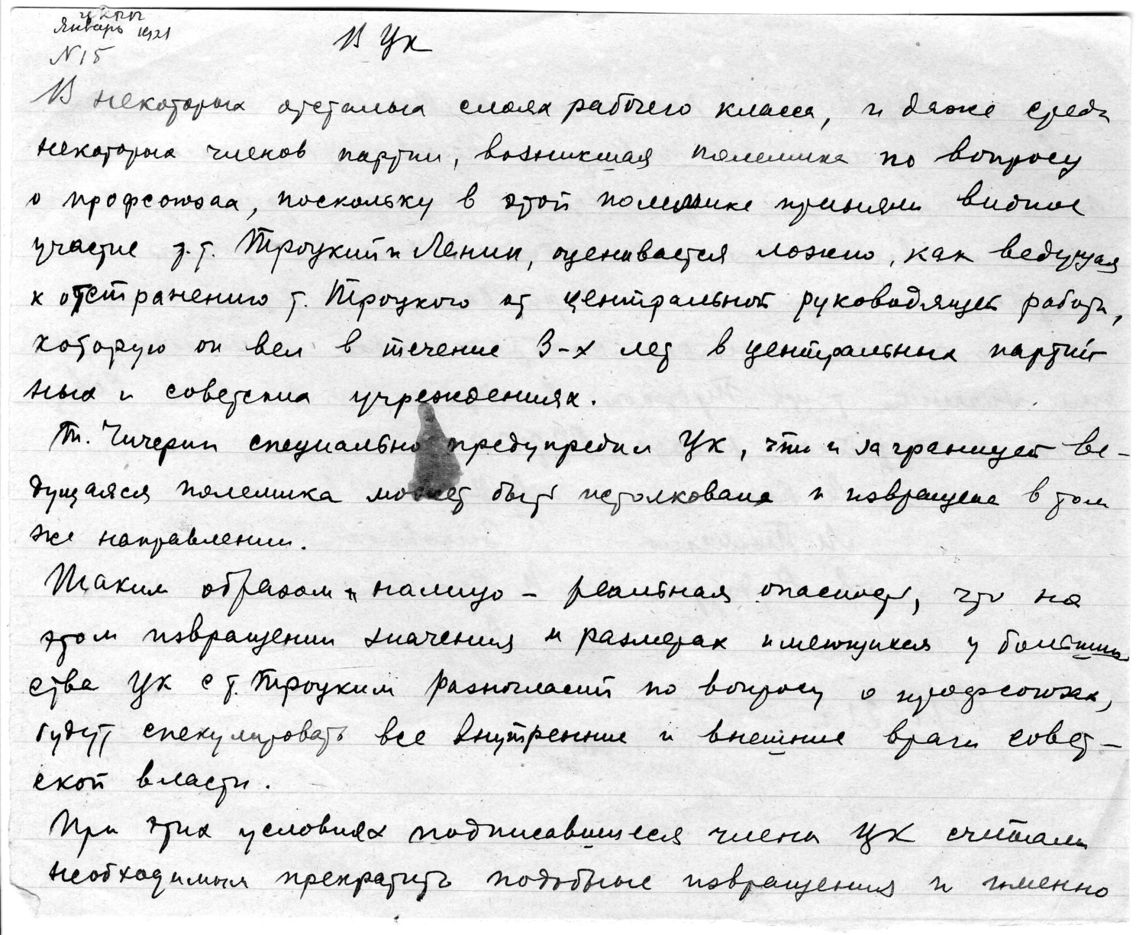 Январь 1921
N 15
В ЦК
В некоторых отсталых слоях рабочего класса, и даже среди
некоторых членов партии, возникшая полемика по вопросу
о профсоюзах, поскольку в этой полемике приняли видное
участие т.т. Троцкий и Ленин, оценивается ложно, как ведущая
к отстранению т. Троцкого от центральной руководящей работы,
которую он вел в течение 3-х лет в центральных партий
ных и советских учреждениях.
Т. Чичерин специально предупредил ЦК, что и заграницей ве-
дущаяся полемика может быть истолкована и извращена в том
же направлении.
Таким образом налицо - реальная опасность, что на
этом извращении значения и размерах имеющихся у большин
ства ЦК с т. Троцким разногласий по вопросу о профсоюзах,
будут спекулировать все внутренние и внешние враги совет-
ской власти.
При этих условиях подписавшиеся члены ЦК считали
необходимым прекратить подобные извращения и именно